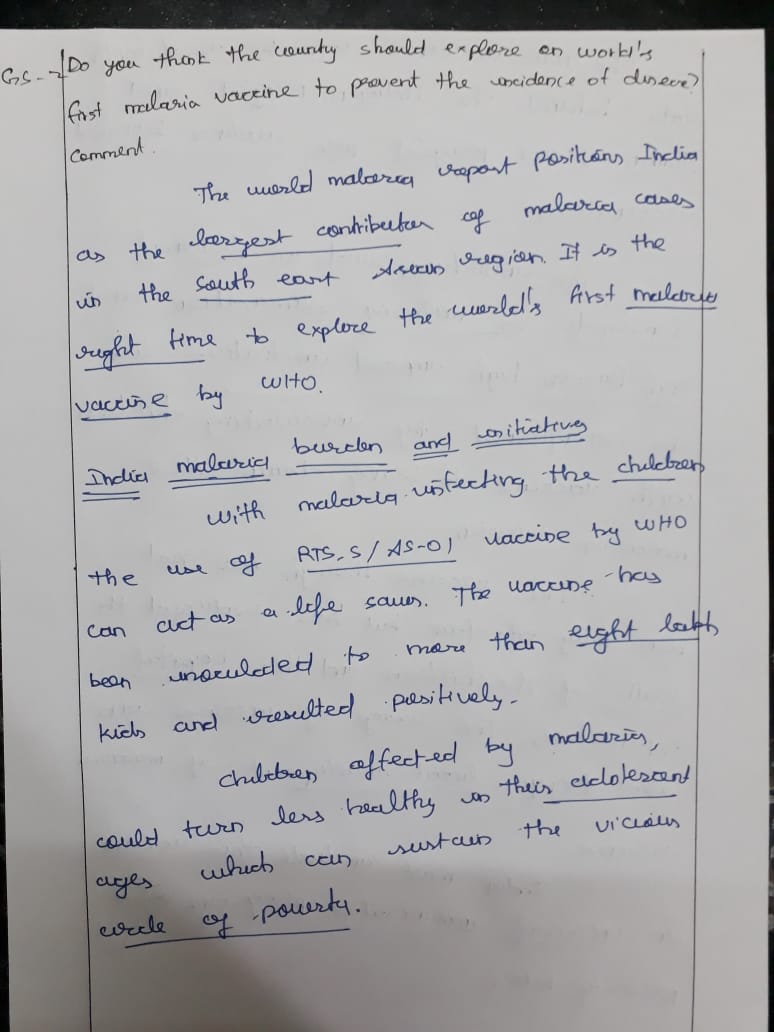 GS-2 Do you think the country should explore on world's
first malaria vaccine to prevent the incidence of disease?
Comment.
The world malaria report positions India
as the largest contributer of malaria cases
in the South east Asean region. It is the
right time to explore the world's first malaria
vaccine by WHO.
India malaria burden and initiatives
With malaria infecting the children
the use of RTS,S / AS-01 vaccine by WHO
can act as a life saver. The vaccine has
been inoculated to more than eight lakh
kids and resulted positively.
Children affected by malaria,
could turn less healthy in their adolescent
ages which can sustain the vicious
circle of poverty.